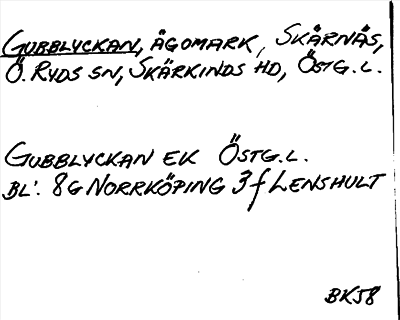 GUBBLYCKAN, ÄGOMARK, SKÅRNÄS,
Ö. RYDS SN, SKÄRKINDS HD, ÖSTG. L.
GUBBLYCKAN EK ÖSTG. L.
BL: 8G NORRKÖPING 3f LENSHULT
BK58